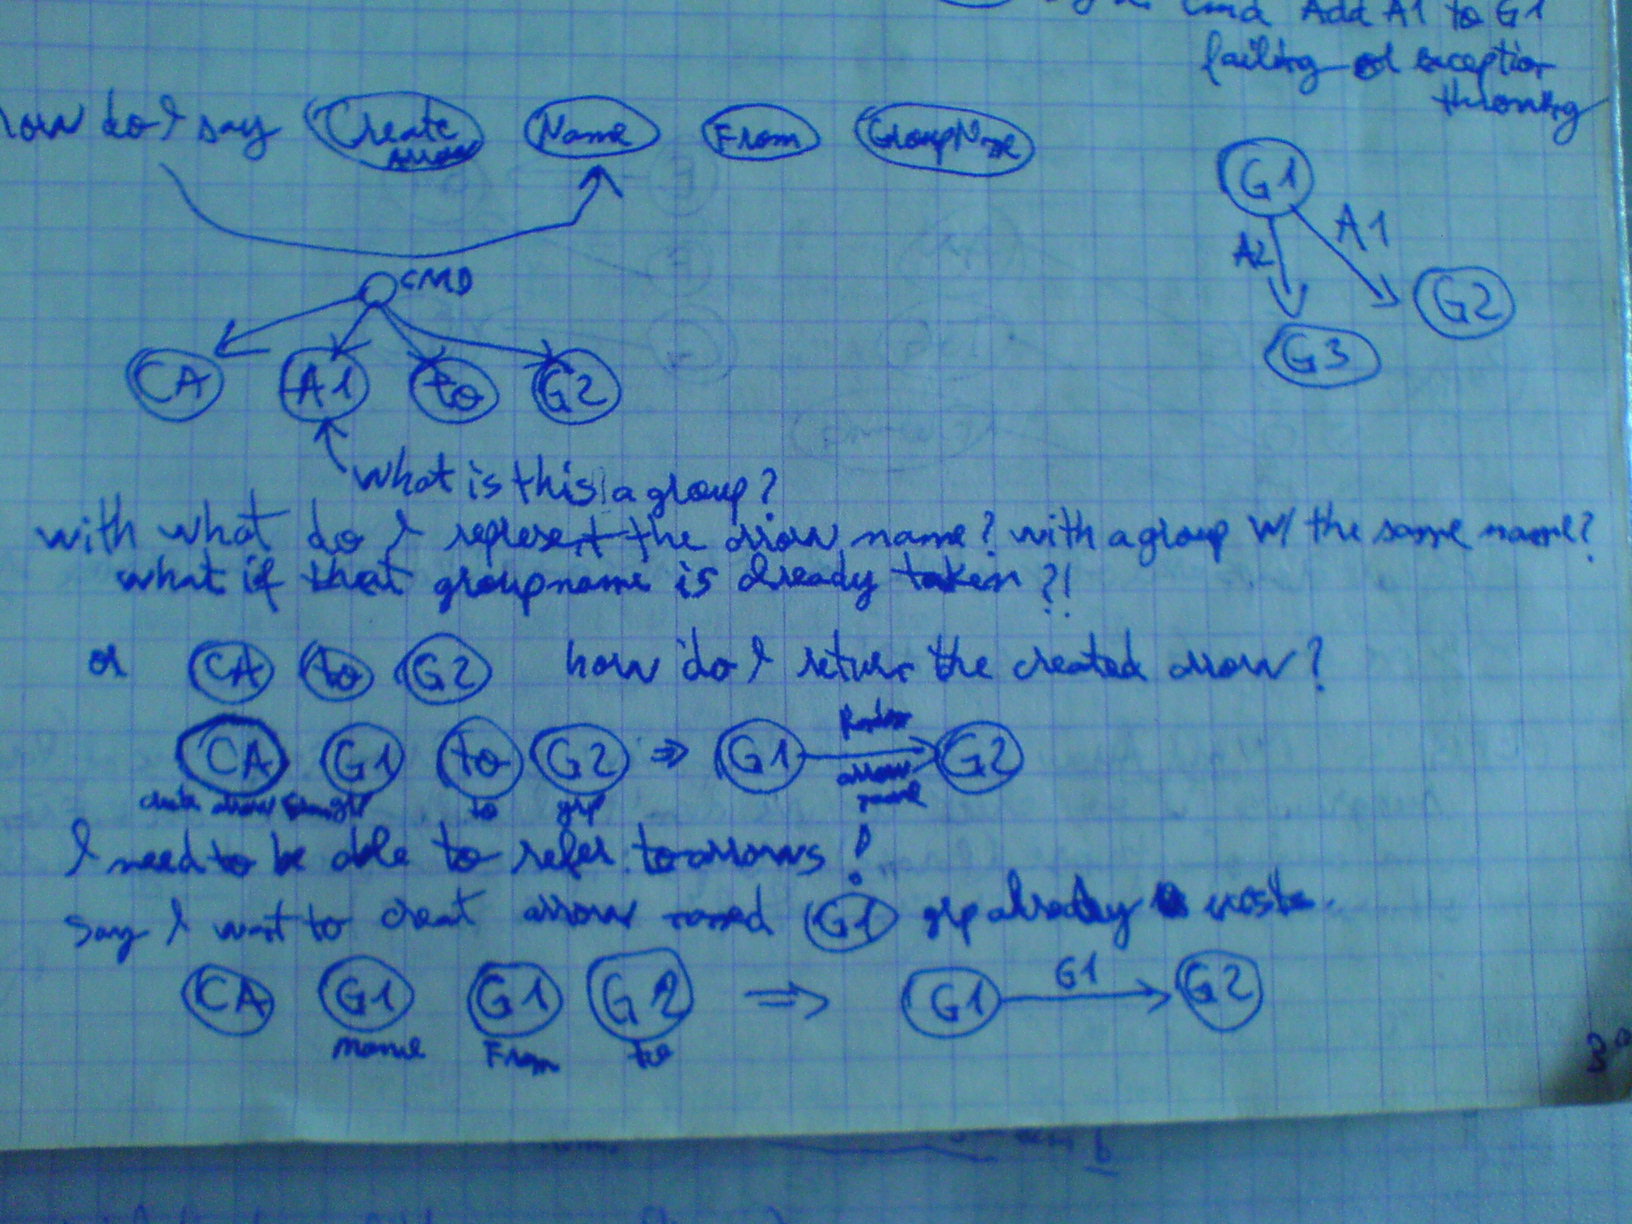 cmd Add A1 to G1
failing exception
how do I say Create arrow Name From GroupName
G1
A2 A1
G2
G3
CMD
CA A1 to G2
what is this a group?
with what do I represent the arrow name? with a group w/ the same name?
what if that groupname is already taken ?!
or CA to G2 how do I return the created arrow?
CA G1 to G2 ⇒ G1 arrow name G2
to grp
I need to be able to refer to arrows!
say I want to creat arrow named G1 grp already
CA G1 G1 G2 ⇒ G1 G1 G2
name From to